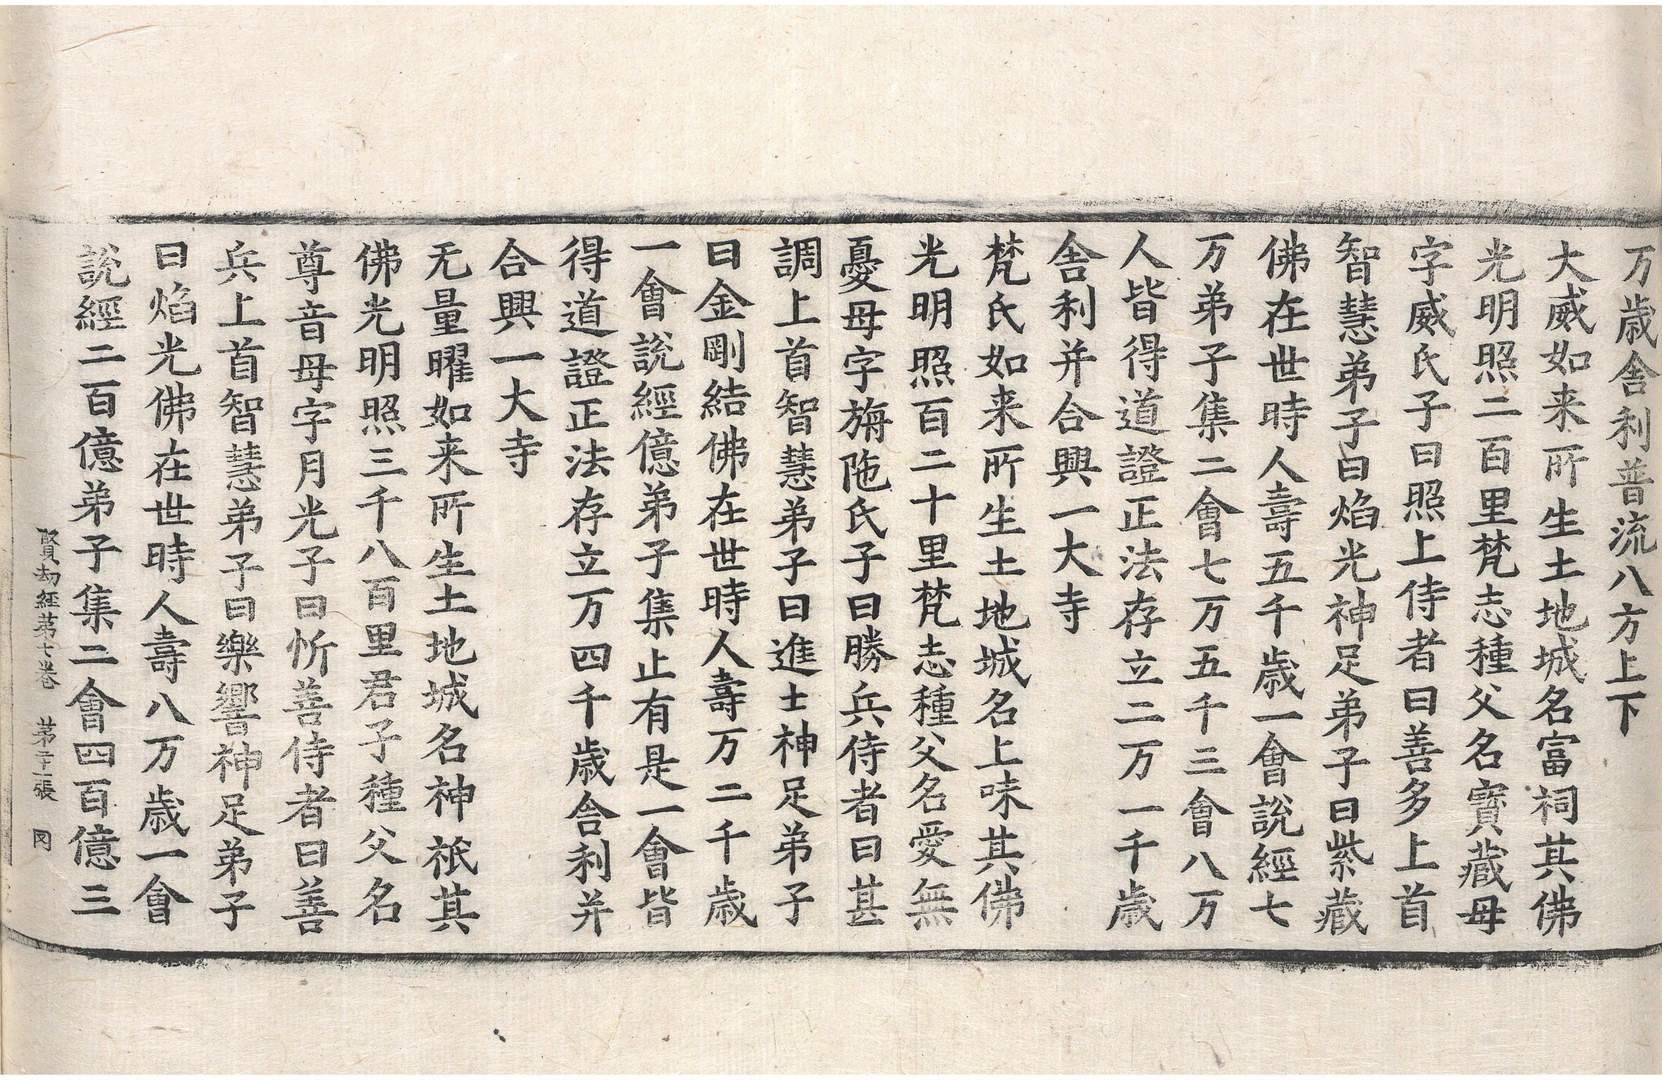 万歲舍利普流八方上下
大威如来所生土地城名富祠其佛
光明照二百里梵志種父名寶藏母
字威氏子曰照上侍者曰善多上首
智慧弟子曰焰光神足弟子曰紫藏
佛在世時人壽五千歲一會說經七
万弟子集二會七万五千三會八万
人皆得道證正法存立二万一千歲
舍利并合興一大寺
梵氏如来所生土地城名上味其佛
光明照百二十里梵志種父名愛無
憂母字旃陁氏子曰勝兵侍者曰甚
調上首智慧弟子曰進士神足弟子
曰金剛結佛在世時人壽万二千歲
一會說經億弟子集止有是一會皆
得道證正法存立万四千歲舍利并
合興一大寺
无量曜如来所生土地城名神祇其
佛光明照三千八百里君子種父名
尊音母字月光子曰忻善侍者曰善
兵上首智慧弟子曰樂響神足弟子
曰焰光佛在世時人壽八万歲一會
說經二百億弟子集二會四百億三
賢劫經第七卷 第二十一張 罔